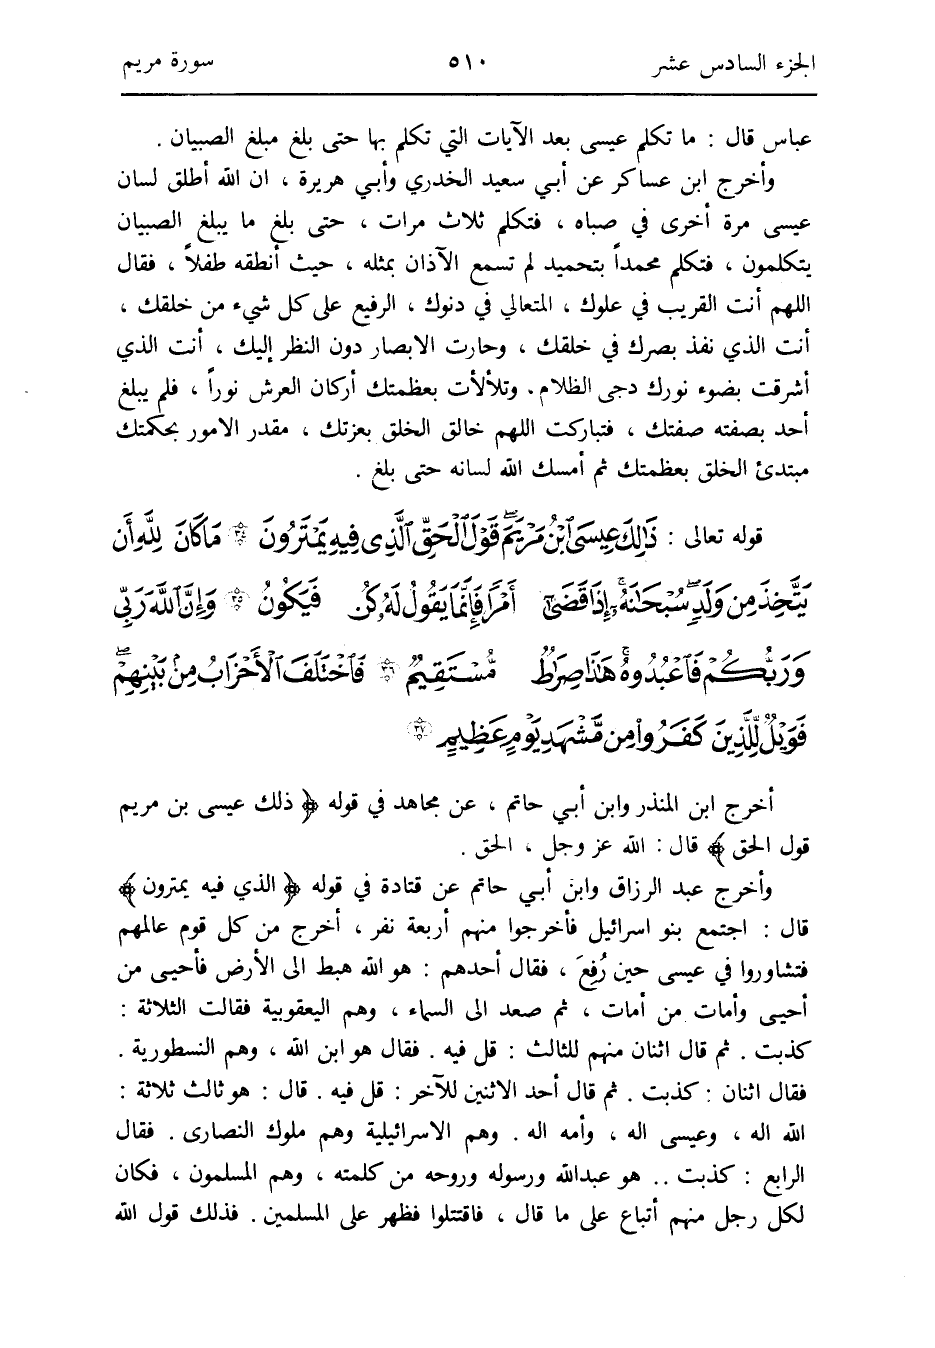 الجزء السادس عشر ٥١٠ سورة مريم
عباس قال : ما تكلم عيسى بعد الآيات التي تكلم بها حتى بلغ مبلغ الصبيان .
وأخرج ابن عساكر عن أبي سعيد الخدري وأبي هريرة ، ان الله أطلق لسان
عيسى مرة أخرى في صباه ، فتكلم ثلاث مرات ، حتى بلغ ما يبلغ الصبيان
يتكلمون ، فتكلم محمداً بتحميد لم تسمع الآذان بمثله ، حيث أنطقه طفلاً ، فقال
اللهم أنت القريب في علوك ، المتعالي في دنوك ، الرفيع على كل شيء من خلقك ،
أنت الذي نفذ بصرك في خلقك ، وحارت الابصار دون النظر إليك ، أنت الذي
أشرقت بضوء نورك دجى الظلام . وتلألأت بعظمتك أركان العرش نوراً ، فلم يبلغ
أحد بصفته صفتك ، فتباركت اللهم خالق الخلق بعزتك ، مقدر الامور بحكمتك
مبتدئ الخلق بعظمتك ثم أمسك الله لسانه حتى بلغ .
قوله تعالى : ذَٰلِكَ عِيسَى ٱبْنُ مَرْيَمَ ۖ قَوْلَ ٱلْحَقِّ ٱلَّذِى فِيهِ يَمْتَرُونَ ٣٤ مَا كَانَ لِلَّهِ أَن
يَتَّخِذَ مِن وَلَدٍ ۖ سُبْحَانَهُۥٓ ۚ إِذَا قَضَىٰٓ أَمْرًا فَإِنَّمَا يَقُولُ لَهُۥ كُن فَيَكُونُ ٣٥ وَإِنَّ ٱللَّهَ رَبِّى
وَرَبُّكُمْ فَٱعْبُدُوهُ ۚ هَٰذَا صِرَاطٌ مُّسْتَقِيمٌ ٣٦ فَٱخْتَلَفَ ٱلْأَحْزَابُ مِنۢ بَيْنِهِمْ ۖ
فَوَيْلٌ لِّلَّذِينَ كَفَرُوا۟ مِن مَّشْهَدِ يَوْمٍ عَظِيمٍ ٣٧
أخرج ابن المنذر وابن أبي حاتم ، عن مجاهد في قوله ﴿ ذلك عيسى بن مريم
قول الحق ﴾ قال : الله عز وجل ، الحق .
وأخرج عبد الرزاق وابن أبي حاتم عن قتادة في قوله ﴿ الذي فيه يمترون ﴾
قال : اجتمع بنو اسرائيل فأخرجوا منهم أربعة نفر ، أخرج من كل قوم عالمهم
فتشاوروا في عيسى حين رُفِعَ ، فقال أحدهم : هو الله هبط الى الأرض فأحيى من
أحيى وأمات من أمات ، ثم صعد الى السماء ، وهم اليعقوبية فقالت الثلاثة :
كذبت . ثم قال اثنان منهم للثالث : قل فيه . فقال هو ابن الله ، وهم النسطورية .
فقال اثنان : كذبت . ثم قال أحد الاثنين للآخر : قل فيه . قال : هو ثالث ثلاثة :
الله اله ، وعيسى اله ، وأمه اله . وهم الاسرائيلية وهم ملوك النصارى . فقال
الرابع : كذبت .. هو عبدالله ورسوله وروحه من كلمته ، وهم المسلمون ، فكان
لكل رجل منهم أتباع على ما قال ، فاقتتلوا فظهر على المسلمين . فذلك قول الله